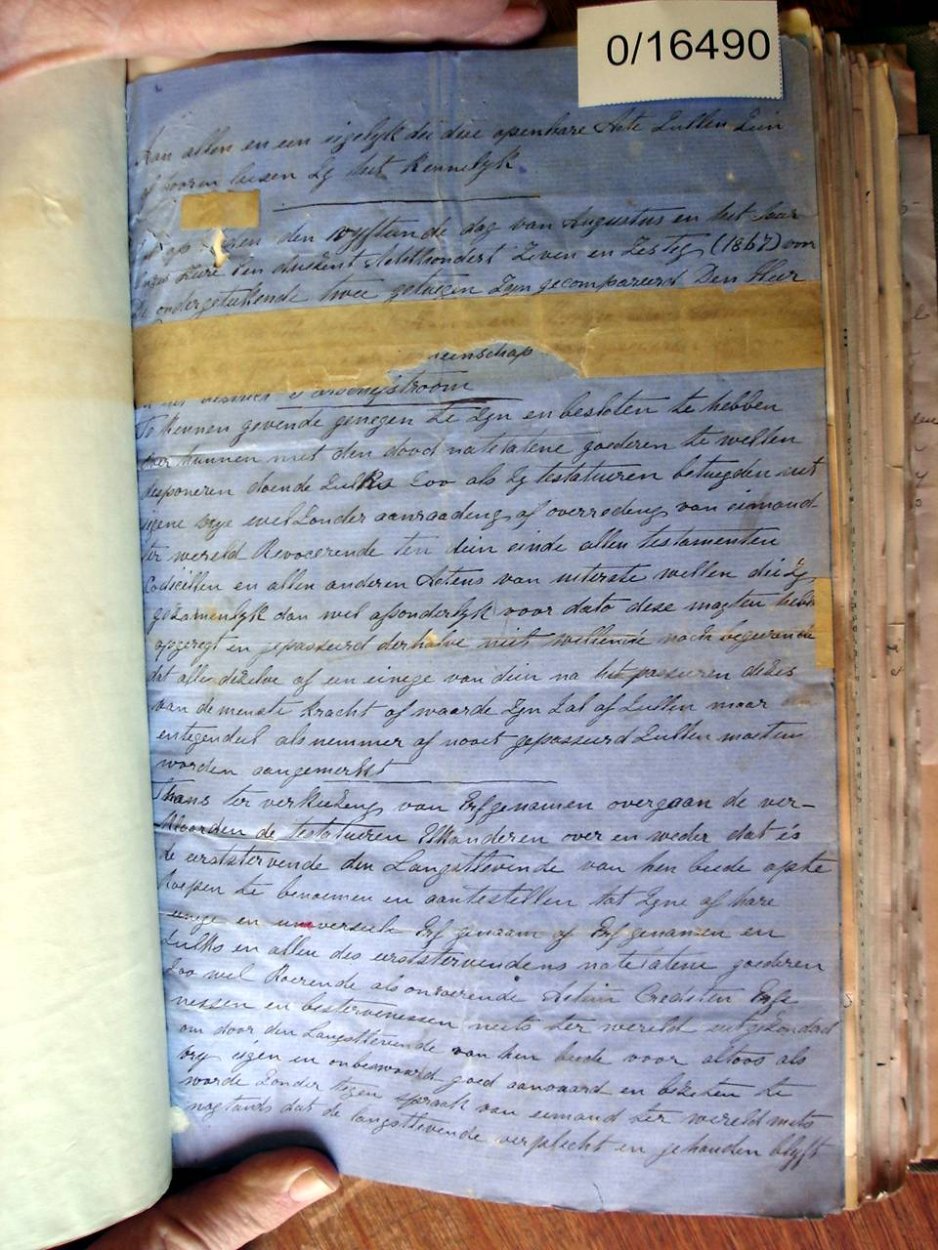 0/16490
Aan allen en een eigelyk die dese openbare Acte Zullen Zien
of hooren leesen Zy het Kennelyk
op den vyftiende dag van Augustus en het Jaar
Heere Een duizent Achthondert Zeven en Zesteg (1867) voor
De ondergeteekende twee getuigen Zyn gecompareerd Den Heer
eenschap
Te Kennen gevende genegen te Zyn en besloten te hebben
over hunnen met den dood natelatene goederen te willen
desponeren doende Zulks Zoo als Zy testatuiren betuigden uit
eigene vrye wel Zonder aanraadeng of overredeng van eimand
ter wereld Revocerende ten dien einde allen testamenten
Codicillen en allen anderen Actens van uiterste wellen die Zy
gezamenlyk dan wel afsonderlyk voor dato dese mogten hebben
opgeregt en gepasseerd derhalve niet wellende noch begeerende
dat alle dezelve of en einege van dien na het passuren dezes
van de menste kracht of waarde Zyn Zal of Zullen maar
entegendeel als nemmer of nooit gepasseerd Zullen moeten
worden aangemerkt
Thans ter verkiezeng van Erfgenamen overgaan de ver-
klaarden de testatuiren Elkanderen over en weder dat is
de eerststervende den Langstlevende van hen beide opte
Roepen te benoemen en aantestellen tot Zyne of hare
enege en uneverseele Erfgenaam of Erfgenamen en
Zulks en allen des eerststervendens natelatene goederen
Zoo wel Roerende als onroerende Actien Credeten Erfe
nessen en bestervenessen niets ter wereld uitgezonderd
om door den Langstlevende van hen beide voor altoos als
vry eigen en onbeswaard goed aanvaard en bezeten te
worde Zonder tegen spraak van eimand ter wereld mits
nogtands dat de langstlevende verplecht en gehouden blyft